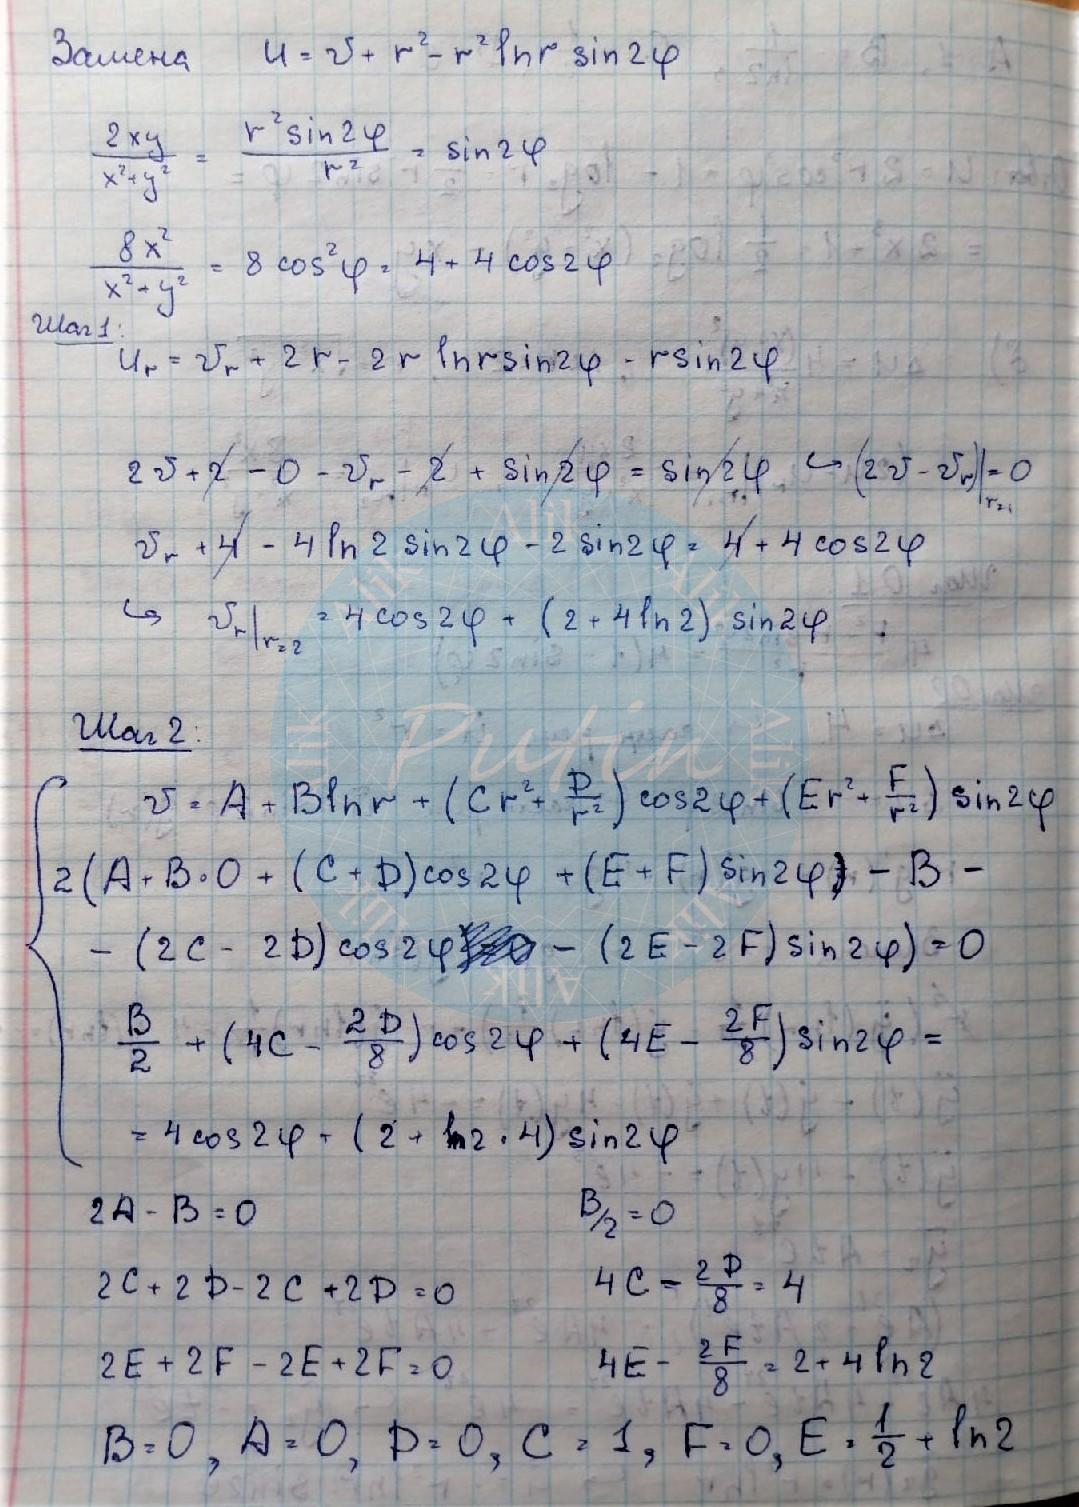 Замена u = v + r² - r² ln r sin2φ
2xy / (x²+y²) = r² sin2φ / r² = sin2φ
8x² / (x²+y²) = 8 cos²φ = 4 + 4 cos2φ
Шаг 1:
u_r = v_r + 2r - 2r ln r sin2φ - r sin2φ
2v + 2 - 0 - v_r - 2 + sin2φ = sin2φ ↪ (2v - v_r)|_{r=1} = 0
v_r + 4 - 4 ln 2 sin2φ - 2 sin2φ = 4 + 4 cos2φ
↪ v_r|_{r=2} = 4 cos2φ + (2 + 4 ln 2) sin2φ
Шаг 2:
v = A + B ln r + (Cr² + D/r²) cos2φ + (Er² + F/r²) sin2φ
2(A + B·0 + (C + D) cos2φ + (E + F) sin2φ) - B -
- (2C - 2D) cos2φ - (2E - 2F) sin2φ) = 0
B/2 + (4C - 2D/8) cos2φ + (4E - 2F/8) sin2φ =
= 4 cos2φ + (2 + ln2 · 4) sin2φ
2A - B = 0 B/2 = 0
2C + 2D - 2C + 2D = 0 4C - 2D/8 = 4
2E + 2F - 2E + 2F = 0 4E - 2F/8 = 2 + 4 ln 2
B = 0, A = 0, D = 0, C = 1, F = 0, E = 1/2 + ln 2
Alik
Alik
Alik
Alik
Alik
Alik
Alik
Alik
Putin